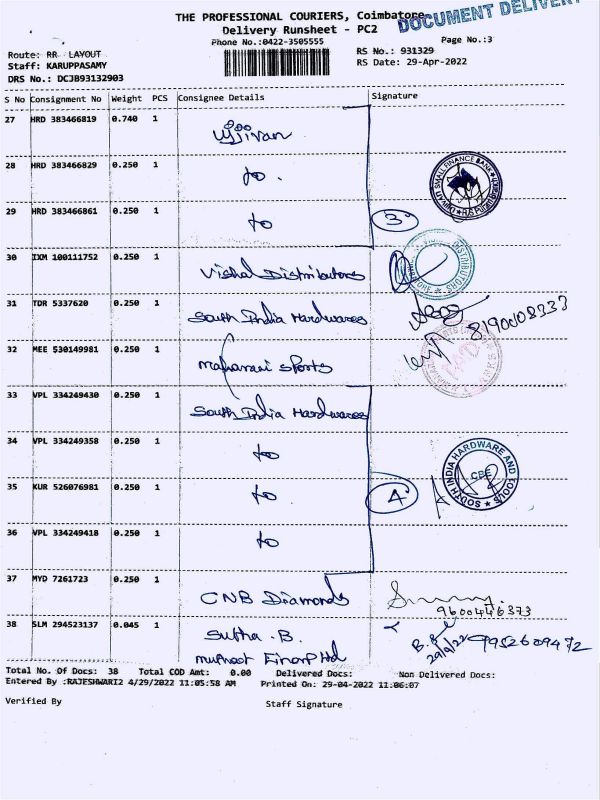 THE PROFESSIONAL COURIERS, Coimbatore
DOCUMENT DELIVERY
Delivery Runsheet - PC2
Phone No.:0422-3505555
Page No.:3
Route: RR LAYOUT
RS No.: 931329
Staff: KARUPPASAMY
RS Date: 29-Apr-2022
DRS No.: DCJB93132903
S No Consignment No Weight PCS Consignee Details Signature
27 HRD 383466819 0.740 1 Ujjivan
28 HRD 383466829 0.250 1 to
UJJIVAN SMALL FINANCE BANK
29 HRD 383466861 0.250 1 to 3
30 IXM 100111752 0.250 1 Vishal Distributors
31 TDR 5337620 0.250 1 South India Hardwares
8190008333
32 MEE 530149981 0.250 1 maharani sports
33 VPL 334249430 0.250 1 South India Hardwares
34 VPL 334249358 0.250 1 to
SOUTH INDIA HARDWARE AND TOOLS
CBE
35 KUR 526076981 0.250 1 to 4
36 VPL 334249418 0.250 1 to
37 MYD 7261723 0.250 1 CNB Diamonds
9600446373
38 SLM 294523137 0.045 1 Subha .B.
9952609472
Total No. Of Docs: 38 Total COD Amt: 0.00 Delivered Docs: Non Delivered Docs:
Entered By :RAJESHWARI2 4/29/2022 11:05:58 AM Printed On: 29-04-2022 11:06:07
Verified By
Staff Signature